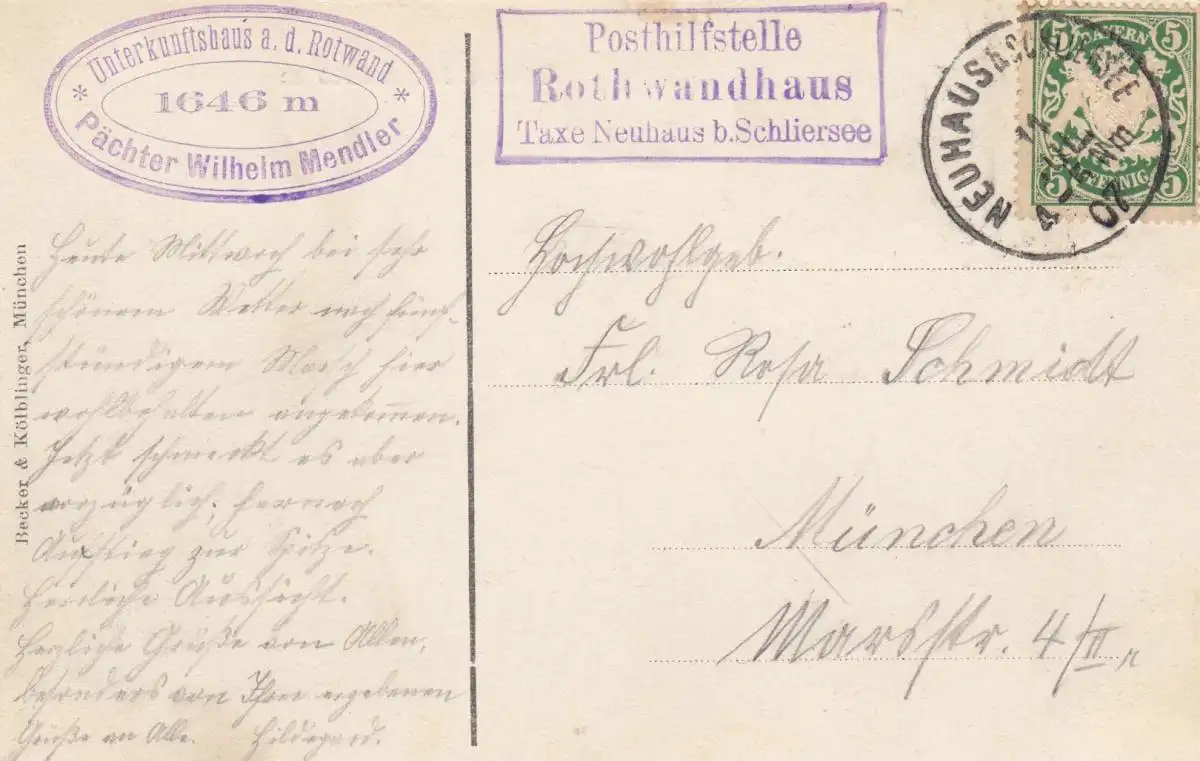 Unterkunftshaus a. d. Rotwand
* 1646 m *
Pächter Wilhelm Mendler
Posthilfstelle
Rothwandhaus
Taxe Neuhaus b. Schliersee
NEUHAUS B. SCHLIERSEE
11
4
07
BAYERN
5 5
PFENNIG
5 5
Becker & Kölblinger, München
Heute Mittwoch bei sehr
schönem Wetter nach fünf-
stündigem Marsch hier
wohlbehalten angekommen.
Jetzt schmeckt es aber
vorzüglich, hernach
Aufstieg zur Spitze.
Herrliche Aussicht.
Herzliche Grüße von Allen,
besonders von Ihrer ergebenen
Grüße an Alle. Hildegard.
Hochwohlgeb.
Frl. Rosa Schmidt
München
Marsstr. 4/II r